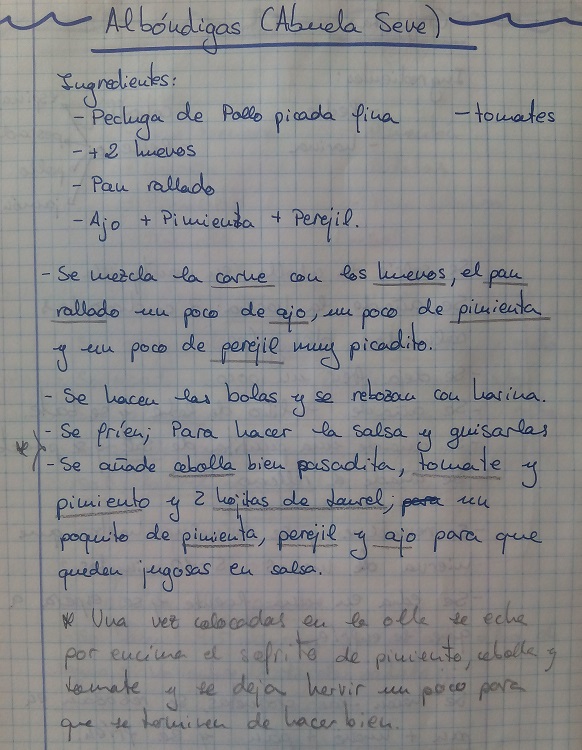 Albóndigas (Abuela Seve)
Ingredientes:
- Pechuga de Pollo picada fina - tomates
- +2 huevos
- Pan rallado
- Ajo + Pimienta + Perejil.
- Se mezcla la carne con los huevos, el pan
rallado un poco de ajo, un poco de pimienta
y un poco de perejil muy picadito.
- Se hacen las bolas y se rebozan con harina.
- Se fríen; Para hacer la salsa y guisarlas
* - Se añade cebolla bien pasadita, tomate y
pimiento y 2 hojitas de laurel; para un
poquito de pimienta, perejil y ajo para que
queden jugosas en salsa.
* Una vez colocadas en la olla se echa
por encima el sofrito de pimiento, cebolla y
tomate y se deja hervir un poco para
que se terminen de hacer bien.